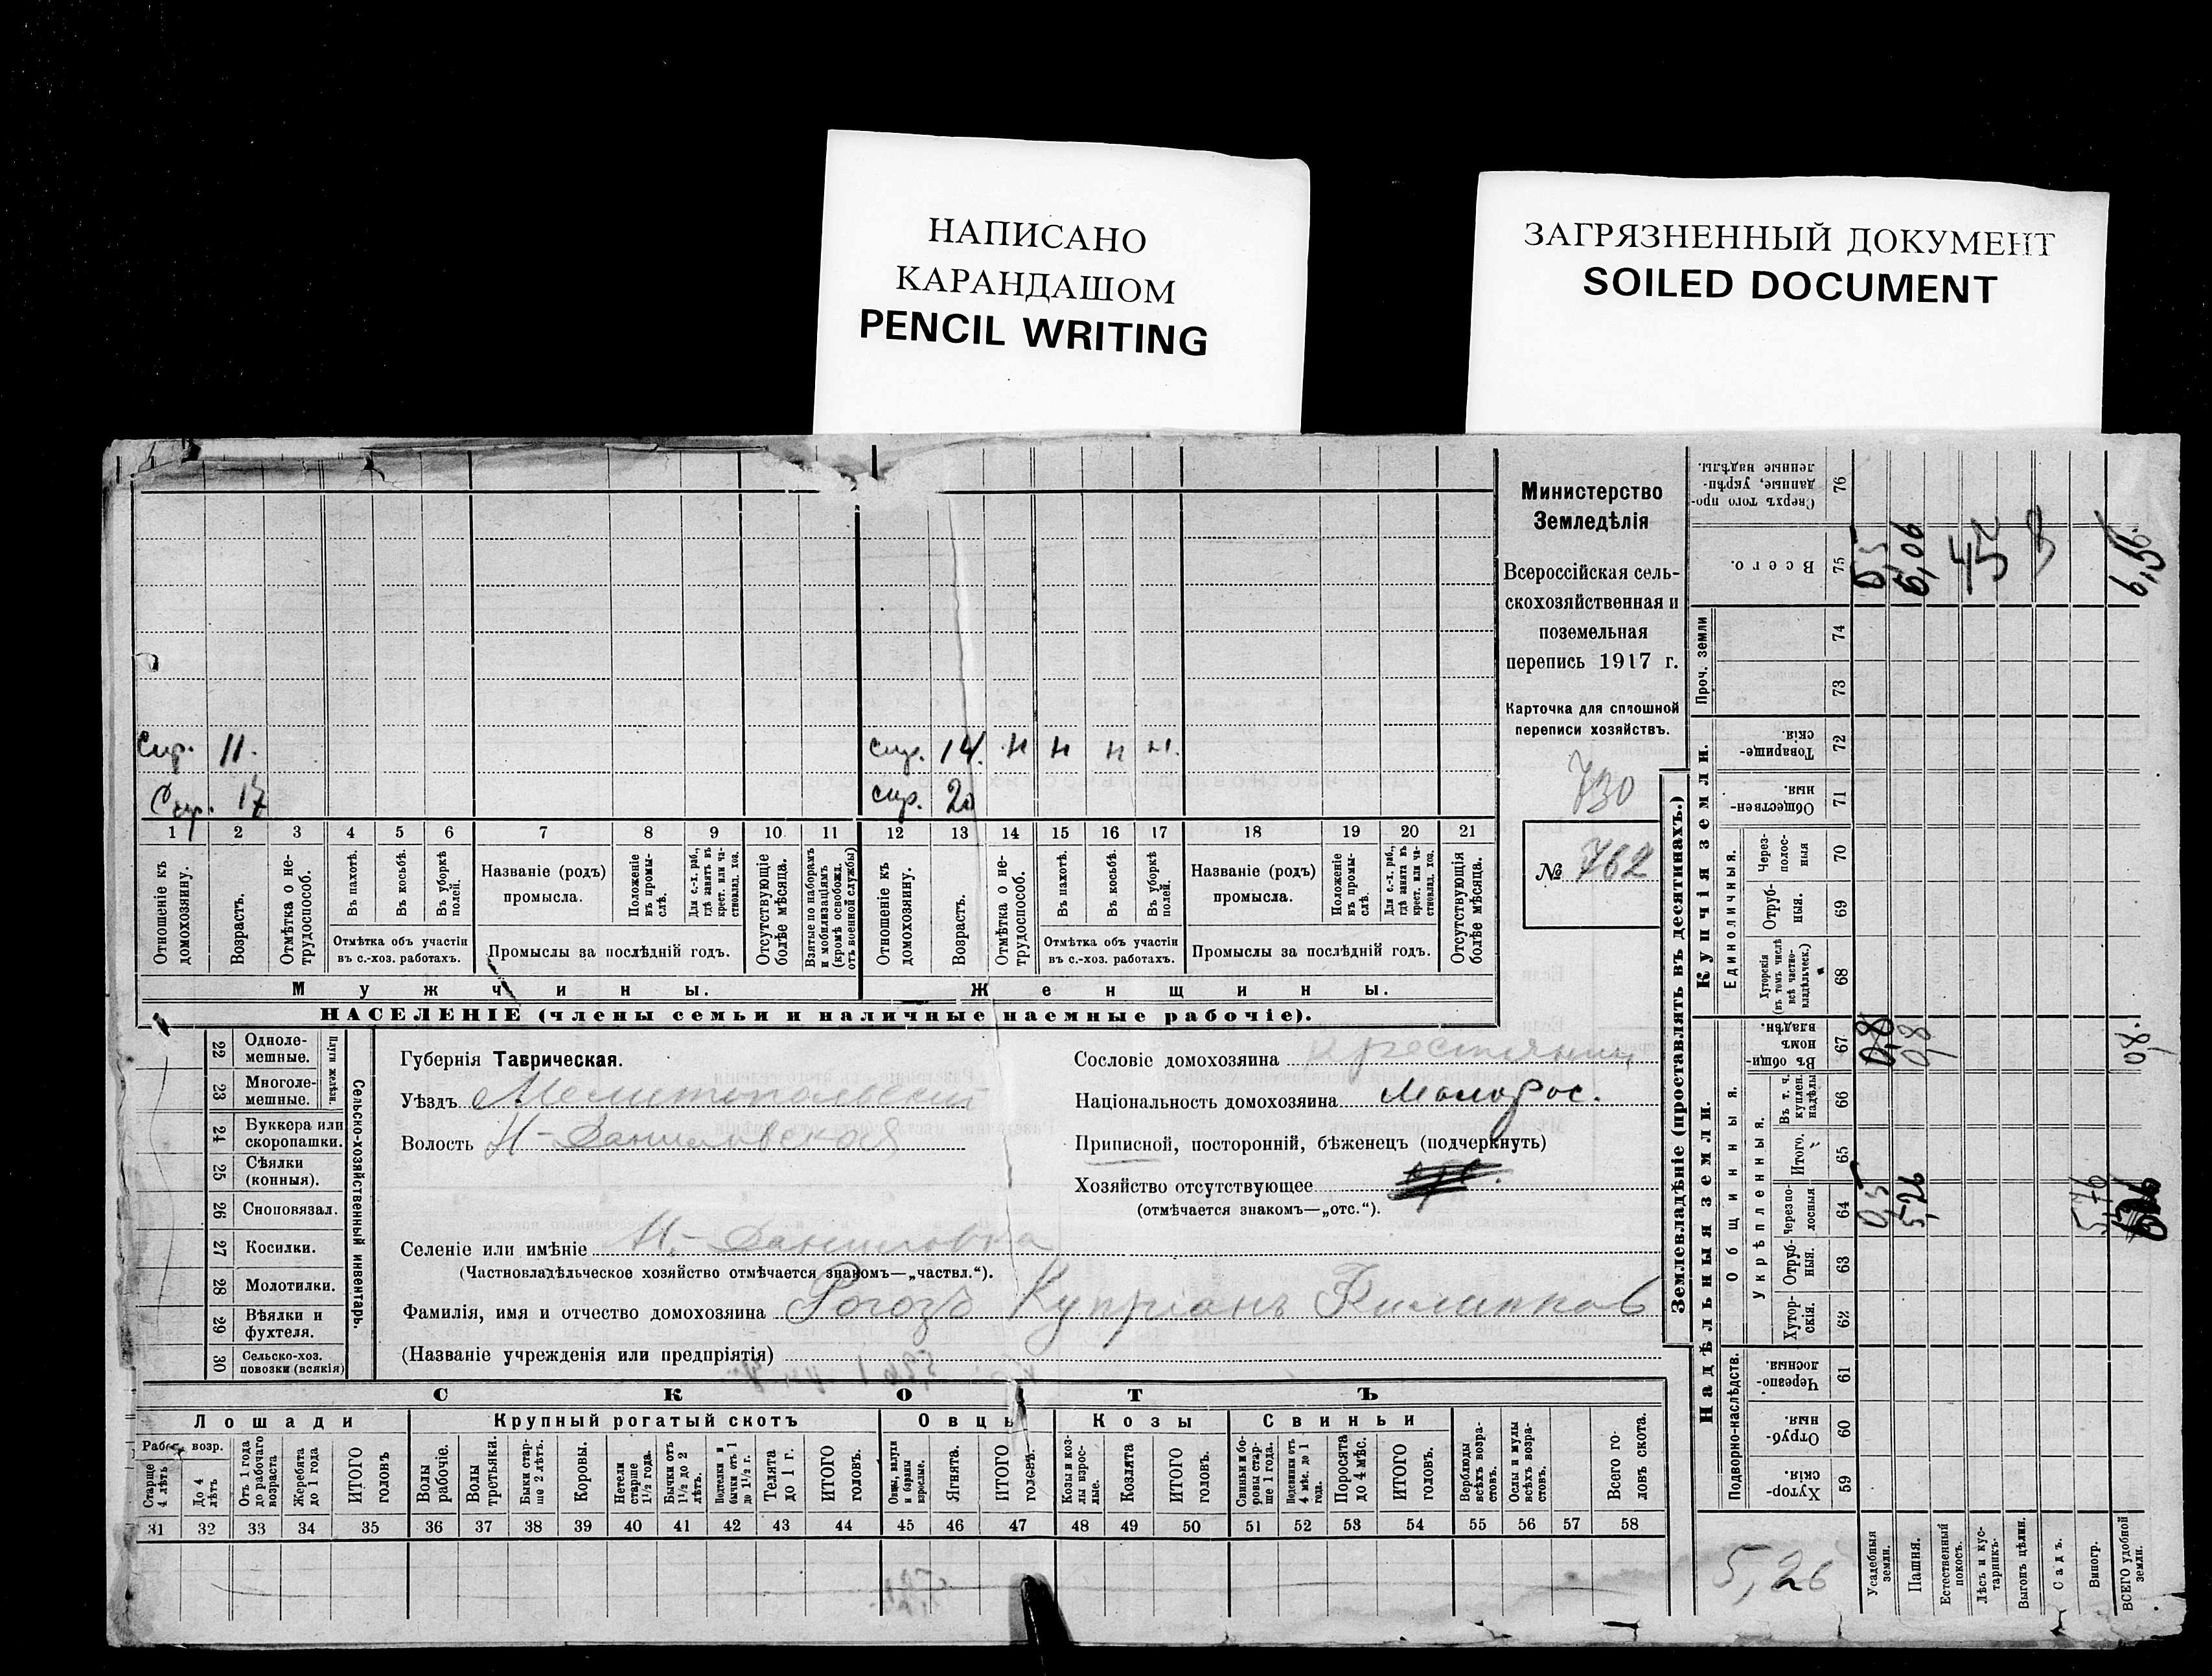 НАПИСАНО
КАРАНДАШОМ
PENCIL WRITING
ЗАГРЯЗНЕННЫЙ ДОКУМЕНТ
SOILED DOCUMENT
Министерство
Земледѣлія
Всероссійская сель-
скохозяйственная и
поземельная
перепись 1917 г.
Карточка для сплошной
переписи хозяйствъ.
730
№ 762
11. 14. н н н н.
17 20
1 2 3 4 5 6 7 8 9 10 11 12 13 14 15 16 17 18 19 20 21
Отношеніе къ домохозяину.
Возрастъ.
Отмѣтка о не-трудоспособ.
Въ пахотѣ.
Въ косьбѣ.
Въ уборкѣ полей.
Отмѣтка объ участіи
въ с.-хоз. работахъ.
Названіе (родъ)
промысла.
Положеніе въ промы-слѣ.
Для с.-х. раб., гдѣ занятъ въ крест. или ча-стновлад. хоз.
Промыслы за послѣдній годъ.
Отсутствующіе болѣе мѣсяца.
Взятые по наборамъ и мобилизаціямъ (кромѣ освобожд. отъ военной службы)
Отношеніе къ домохозяину.
Возрастъ.
Отмѣтка о не-трудоспособ.
Въ пахотѣ.
Въ косьбѣ.
Въ уборкѣ полей.
Отмѣтка объ участіи
въ с.-хоз. работахъ.
Названіе (родъ)
промысла.
Положеніе въ промы-слѣ.
Для с.-х. раб., гдѣ занята въ крест. или ча-стновлад. хоз.
Промыслы за послѣдній годъ.
Отсутствующія болѣе мѣсяца.
Мужчины. Женщины.
НАСЕЛЕНІЕ (члены семьи и наличные наемные рабочіе).
22 Одноле-мешные.
23 Многоле-мешные.
Плуги желѣзн.
24 Буккера или скоропашки.
25 Сѣялки (конныя).
26 Сноповязал.
27 Косилки.
28 Молотилки.
29 Вѣялки и фухтеля.
30 Сельско-хоз. повозки (всякія)
Сельско-хозяйственный инвентарь.
Губернія Таврическая.
Уѣздъ Мелитопольскій
Волость Н-Даниловская
Селеніе или имѣніе Н.-Даниловка
(Частновладѣльческое хозяйство отмѣчается знакомъ—„частвл.“).
Фамилія, имя и отчество домохозяина Рогозъ Купріанъ Филиппов
(Названіе учрежденія или предпріятія)
Сословіе домохозяина крестьянин
Національность домохозяина малорос.
Приписной, посторонній, бѣженецъ (подчеркнуть)
Хозяйство отсутствующее
(отмѣчается знакомъ—„отс.“).
СКОТЪ
Лошади Крупный рогатый скотъ Овцы Козы Свиньи
Рабоч. возр.
Старше 4 лѣтъ
До 4 лѣтъ
Отъ 1 года до рабочаго возраста
Жеребята до 1 года
ИТОГО головъ
Волы рабочіе.
Волы третьяки.
Быки стар-ше 2 лѣтъ.
Коровы.
Нетели старше 1 1/2 года.
Бычки отъ 1 1/2 до 2 лѣтъ.
Подтелки и бычки отъ 1 до 1 1/2 г.
Телята до 1 г.
ИТОГО головъ.
Овцы, валухи и бараны взрослые.
Ягнята.
ИТОГО головъ.
Козы и коз-лы взрос-лые.
Козлята
ИТОГО головъ.
Свиньи и бо-ровы стар-ше 1 года.
Подсвинки отъ 4 мѣс. до 1 года.
Поросята до 4 мѣс.
ИТОГО головъ.
Верблюды всѣхъ возра-стовъ.
Ослы и мулы всѣхъ возра-стовъ.
Всего го-ловъ скота.
31 32 33 34 35 36 37 38 39 40 41 42 43 44 45 46 47 48 49 50 51 52 53 54 55 56 57 58
Землевладѣніе (проставлять въ десятинахъ.)
Надѣльныя земли.
Купчія земли.
Проч. земли
Подворно-наслѣдств.
Общинныя.
Укрѣпленныя.
Единоличныя.
Хутор-скія. 59
Отруб-ныя. 60
Черезпо-лосныя. 61
Хутор-скія. 62
Отруб-ныя. 63
Черезпо-лосныя 64
Итого. 65
Въ т. ч. куплен. надѣлы 66
Въ общин-номъ владѣн. 67
Хуторскія (въ томъ числѣ всѣ частно-владѣльческ.) 68
Отруб-ныя. 69
Через-полос-ныя 70
Обществен-ныя. 71
Товарище-скія. 72
73
74
Всего. 75
Сверхъ того про-данные, укрѣп-ленные надѣлы. 76
Усадебныя земли.
Пашня.
Естественный покосъ.
Лѣсъ и кус-тарникъ.
Выгонъ цѣлин.
Садъ.
Виногр.
ВСЕГО удобной земли.
0,5
5,26
5,76
0,8
0,8
6,06
45
3
6,56
5,26